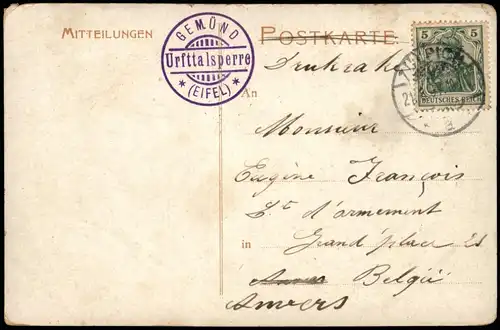 MITTEILUNGEN
GEMÜND
Urfttalsperre
* (EIFEL) *
POSTKARTE
5 5
DEUTSCHES REICH
An
Monsieur
Eugène François
Lt d'armement
in Grand' place
Belgie
Anvers